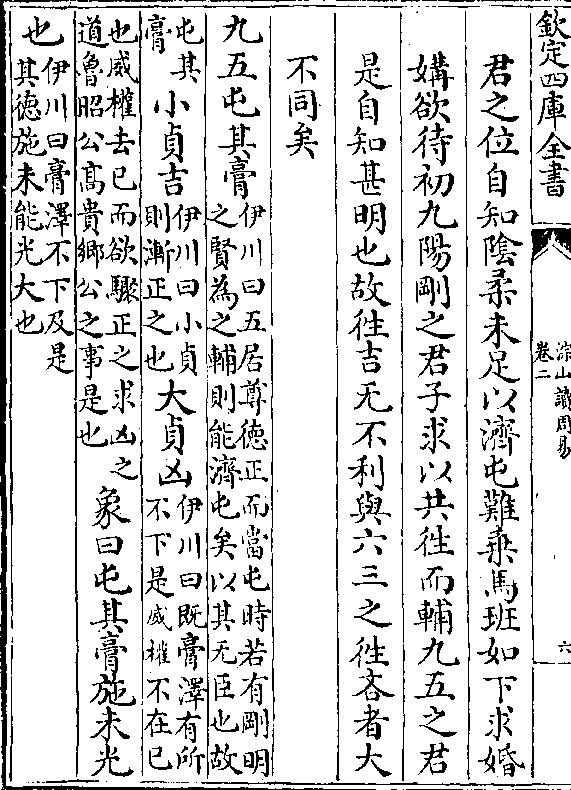 欽定四庫全書
淙山讀周易
卷二
六
君之位自知陰柔未足以濟屯難乗馬班如下求婚
媾欲待初九陽剛之君子求以共往而輔九五之君
是自知甚明也故往吉无不利與六三之往吝者大
不同矣
九五屯其膏
伊川曰五居尊德正而當屯時若有剛明
之賢為之輔則能濟屯矣以其无臣也故
屯其
膏
小貞吉
伊川曰小貞
則漸正之也
大貞凶
伊川曰既膏澤有所
不下是威權不在已
也威權去已而欲驟正之求凶之
道魯昭公髙貴鄉公之事是也
象曰屯其膏施未光
也
伊川曰膏澤不下及是
其徳施未能光大也